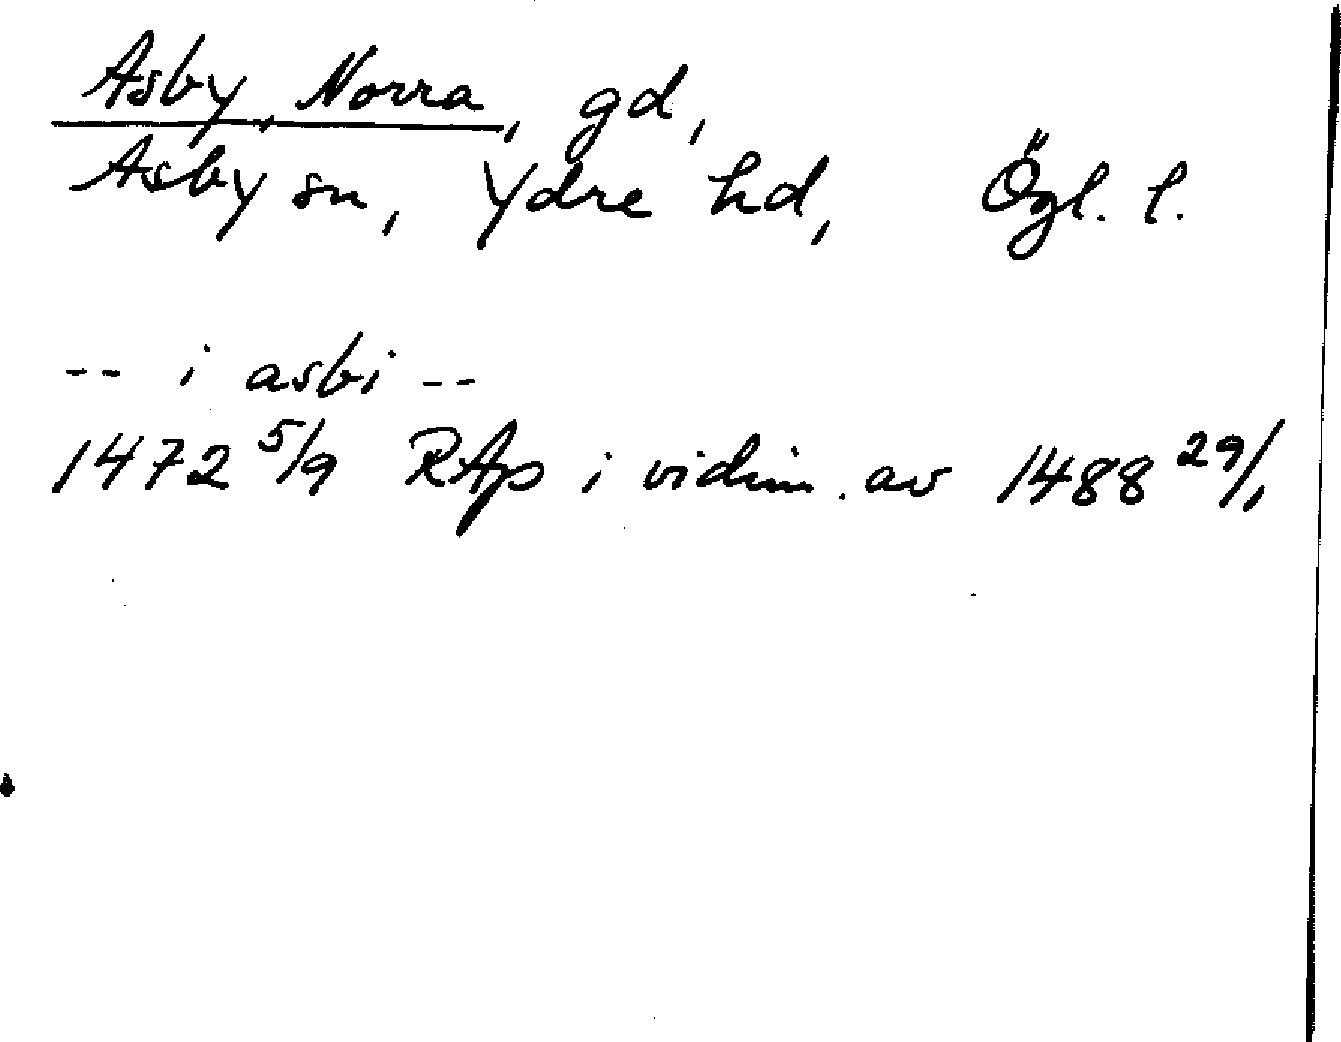 Asby, Norra, gd,
Asby sn, Ydre hd, Ögl. l.
-- i asbi --
1472 5/9 RAp i vidim. av 1488 29/1